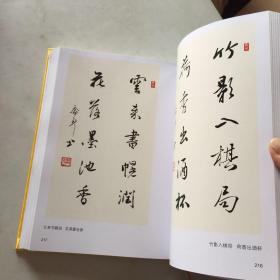 竹影入棋局
荷香出酒杯
竹影入棋局 荷香出酒杯
216
雲來書幌潤
花落墨池香
云来书幌润 花落墨池香
217